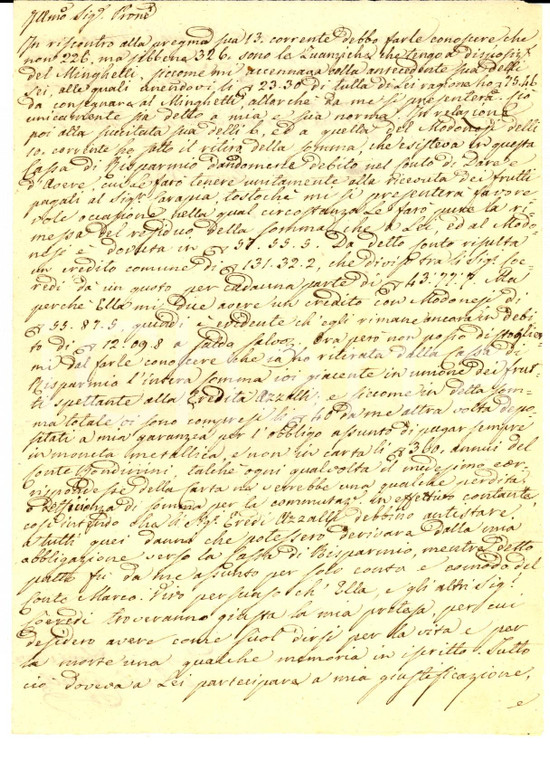 Ill.mo Sig.r Pron.e
In riscontro alla pregma sua 13. corrente debbo farle conoscere che
non 226, ma sibbene 326. sono le Zuanziche che tengo a disposiz.e
del Minghetti, siccome mi accennava colla antecedente sua delli
Lei, alle quali unendovi li 23.30 di lei ragione ho 75.46
da consegnare al Minghetti allorché da me si presenterà. Ciò
unicamente sia detto a mia e sua norma. In relazione
poi alla succitata sua delli 6, ed a quella del Modonesi delli
10. corrente ho fatto il ritiro della somma, che esisteva in questa
Cassa di Risparmio dandomene debito nel Conto di Dare e
d'Avere, cui Le farò tenere unitamente alla ricevuta dei frutti
pagati al Sig.r Sarapia, tostoché mi si presenterà favore
vole occasione, nella qual circostanza Le farò pure la ri
messa del residuo della somma, che a Lei, ed al Modo
nesi è dovuta in 51.55.5. Da detto Conto risulta
un credito comune di 131.32.2, che diviso tra li Sig.i Coe
redi dà un quoto per cadauna parte di 43.77.7. Ma
perchè Ella mi dice avere un credito con Modonesi di
55.87.5, quindi è evidente ch'egli rimane ancora in debi
to di 12.09.8 a Salda Salvo. Ora però non posso distoglier
mi dal farle conoscere che io ho ritirata dalla Cassa di
Risparmio l'intera somma ivi giacente in unione dei frut
ti spettante alla Eredità Azzalli, e siccome in detta som
ma totale vi sono compresi li 40 da me altra volta depo
sitati a mia garanzia per l'obbligo assunto di pagar sempre
in moneta metallica, e non in carta li 360. annui del
Conte Bondurini, talché ogni qualvolta il medesimo
della Carta ne verrebbe una qualche perdita
di somma per la commutaz.e in effettivo contante
così intendo che li Sig.i Eredi Azzalli debbino
a tutti quei danni che potessero derivare dalla mia
obbligazione verso la Cassa di Risparmio, mentre detto
patto fu da me assunto per solo conto e comodo del
Conte Marco. Vivo persuaso ch'Ella, e gli altri Sig.i
Coeredi troveranno giusta la mia protesta, per cui
desidero avere come suol dirsi per la vita e per
la morte una qualche memoria in iscritto. Tutto
ciò doveva a Lei partecipare a mia giustificazione,
e